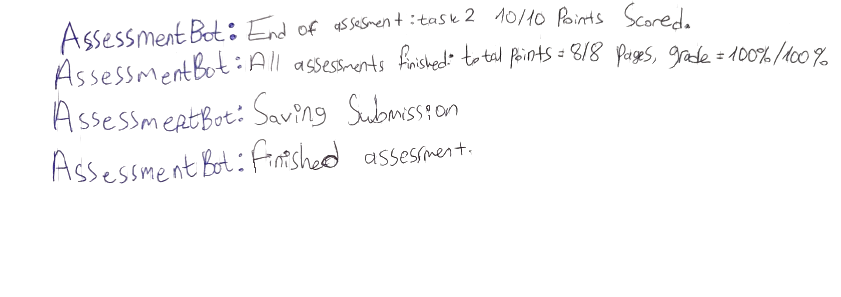 AssessmentBot: End of assesment: task 2 10/10 Points Scored.
AssessmentBot: All assessments finished: total points = 8/8 Pages, grade = 100%/100%
AssessmentBot: Saving Submission
AssessmentBot: Finished assessment.